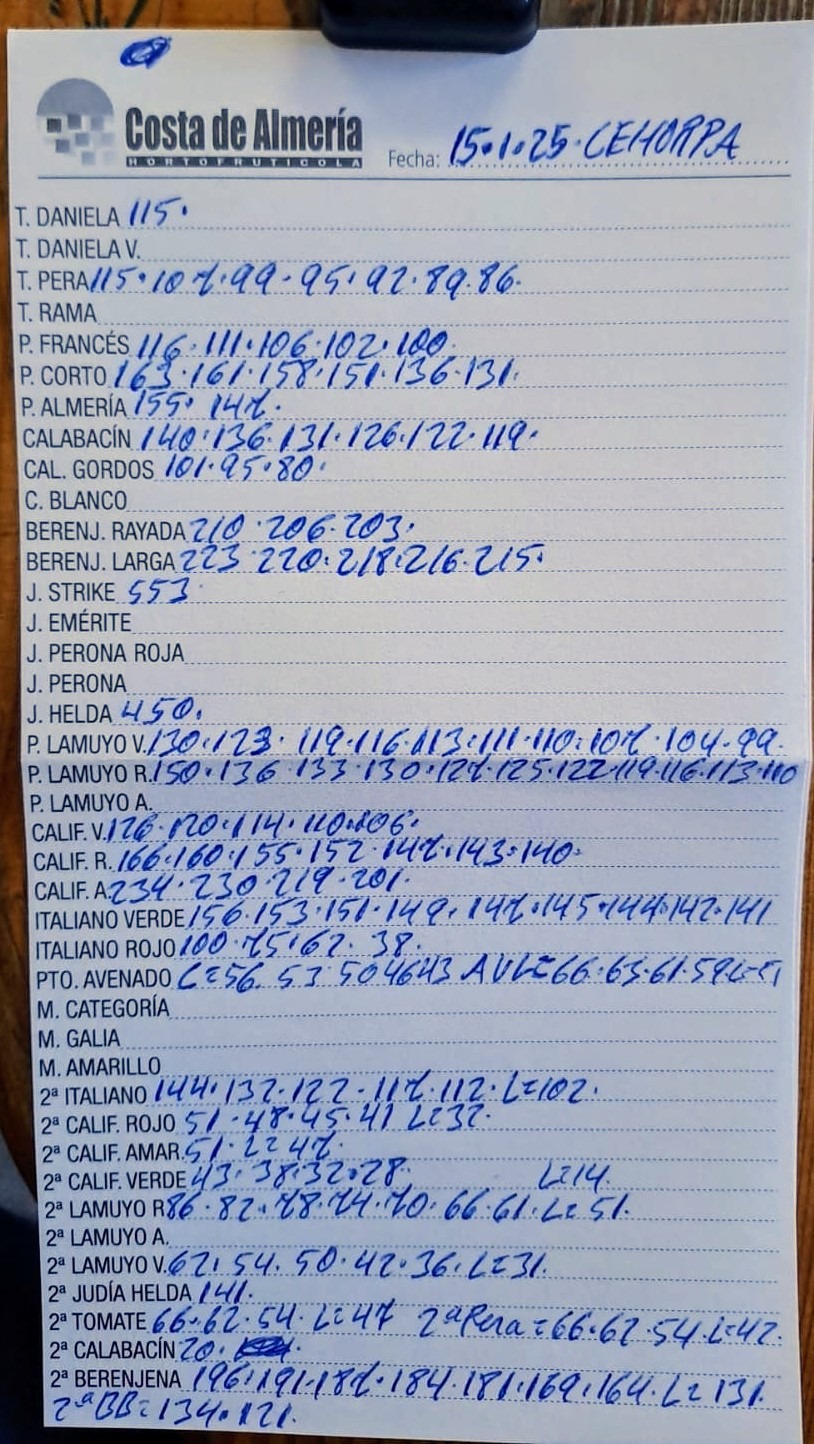 Costa de Almería
HORTOFRUTICOLA
Fecha: 15.1.25. CEHORPA
T. DANIELA 115.
T. DANIELA V.
T. PERA 115.107.99.95.92.89.86.
T. RAMA
P. FRANCÉS 116.111.106.102.100.
P. CORTO 163.161.158.151.136.131.
P. ALMERÍA 155.147.
CALABACÍN 140.136.131.126.122.119.
CAL. GORDOS 101.95.80.
C. BLANCO
BERENJ. RAYADA 210.206.203.
BERENJ. LARGA 223.220.218.216.215.
J. STRIKE 553
J. EMÉRITE
J. PERONA ROJA
J. PERONA
J. HELDA 450.
P. LAMUYO V. 130.123.119.116.113.111.110.107.104.99.
P. LAMUYO R. 150.136.133.130.127.125.122.119.116.113.110
P. LAMUYO A.
CALIF. V. 126.120.114.110.106.
CALIF. R. 166.160.155.152.147.143.140.
CALIF. A. 234.230.219.201.
ITALIANO VERDE 156.153.151.149.147.145.144.142.141
ITALIANO ROJO 100.75.62.38.
PTO. AVENADO L=56.53 50 46 43 AVL=66.63.61.59
M. CATEGORÍA
M. GALIA
M. AMARILLO
2ª ITALIANO 144.132.122.117.112.L=102.
2ª CALIF. ROJO 51.48.45.41 L=32.
2ª CALIF. AMAR. 51.L=47.
2ª CALIF. VERDE 43.38.32.28. L=14.
2ª LAMUYO R 86.82.78.74.70.66.61.L=51.
2ª LAMUYO A.
2ª LAMUYO V. 62.54.50.42.36.L=31.
2ª JUDÍA HELDA 141.
2ª TOMATE 66.62.54.L=47 2ªPera=66.62.54.L=42.
2ª CALABACÍN 20.
2ª BERENJENA 196.191.187.184.181.169.164.L=131.
2ªBB=134.121.